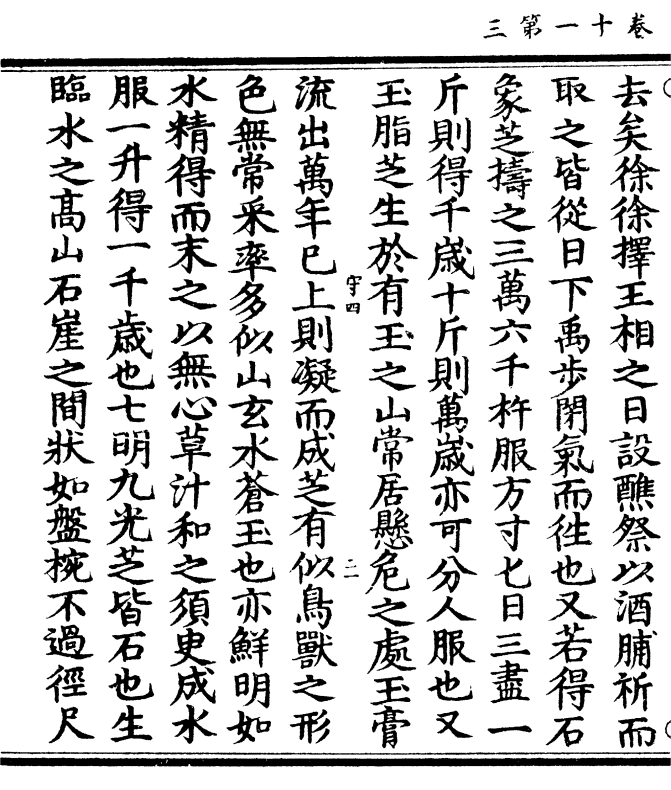 三第一十卷
去矣徐徐擇王相之日設醮祭以酒脯祈而
取之皆從日下禹步閉氣而徃也又若得石
象芝擣之三萬六千杵服方寸匕日三盡一
斤則得千歲十斤則萬歲亦可分人服也又
玉脂芝生於有玉之山常居懸危之處玉膏
守四
二
流出萬年已上則凝而成芝有似鳥獸之形
色無常采率多似山玄水蒼玉也亦鮮明如
水精得而末之以無心草汁和之須臾成水
服一升得一千歲也七明九光芝皆石也生
臨水之高山石崖之間狀如盤椀不過徑尺